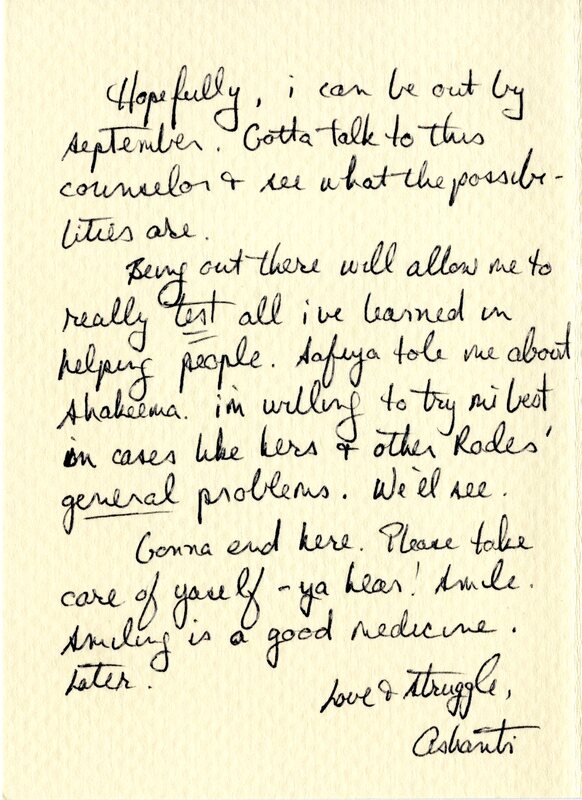 Hopefully, i can be out by
september. Gotta talk to this
counselor & see what the possibi-
lities are.
Being out there will allow me to
really test all i've learned in
helping people. Safiya tole me about
Shakeema. i'm willing to try mi best
in cases like hers & other Rodes'
general problems. We'll see.
Gonna end here. Please take
care of yaself - ya hear! Smile.
Smiling is a good medicine.
Later.
Love & Struggle,
Ashanti